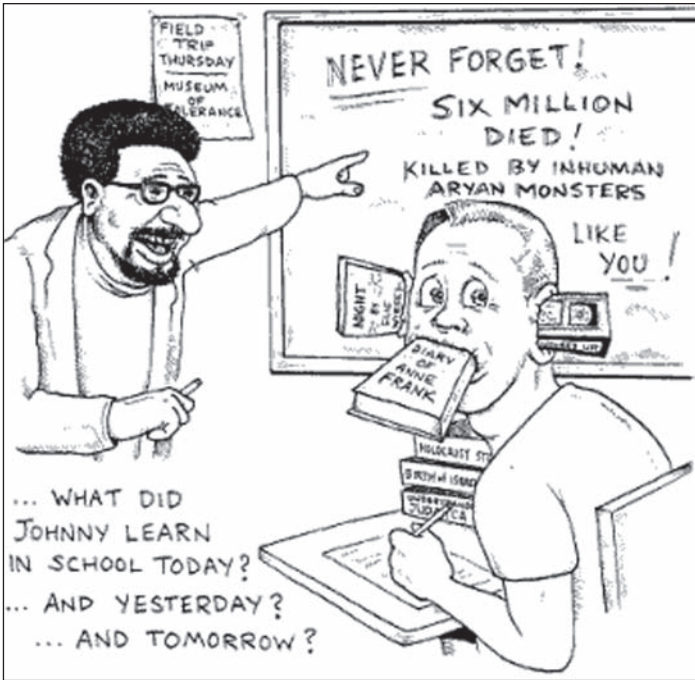 FIELD
TRIP
THURSDAY
MUSEUM
OF
TOLERANCE
NEVER FORGET!
SIX MILLION
DIED!
KILLED BY INHUMAN
ARYAN MONSTERS
LIKE
YOU!
NIGHT
BY
ELIE
WIESEL
DIARY
OF
ANNE
FRANK
HOLOCAUST
BIRTH of ISRAEL
JUDAICA
... WHAT DID
JOHNNY LEARN
IN SCHOOL TODAY?
... AND YESTERDAY?
... AND TOMORROW?